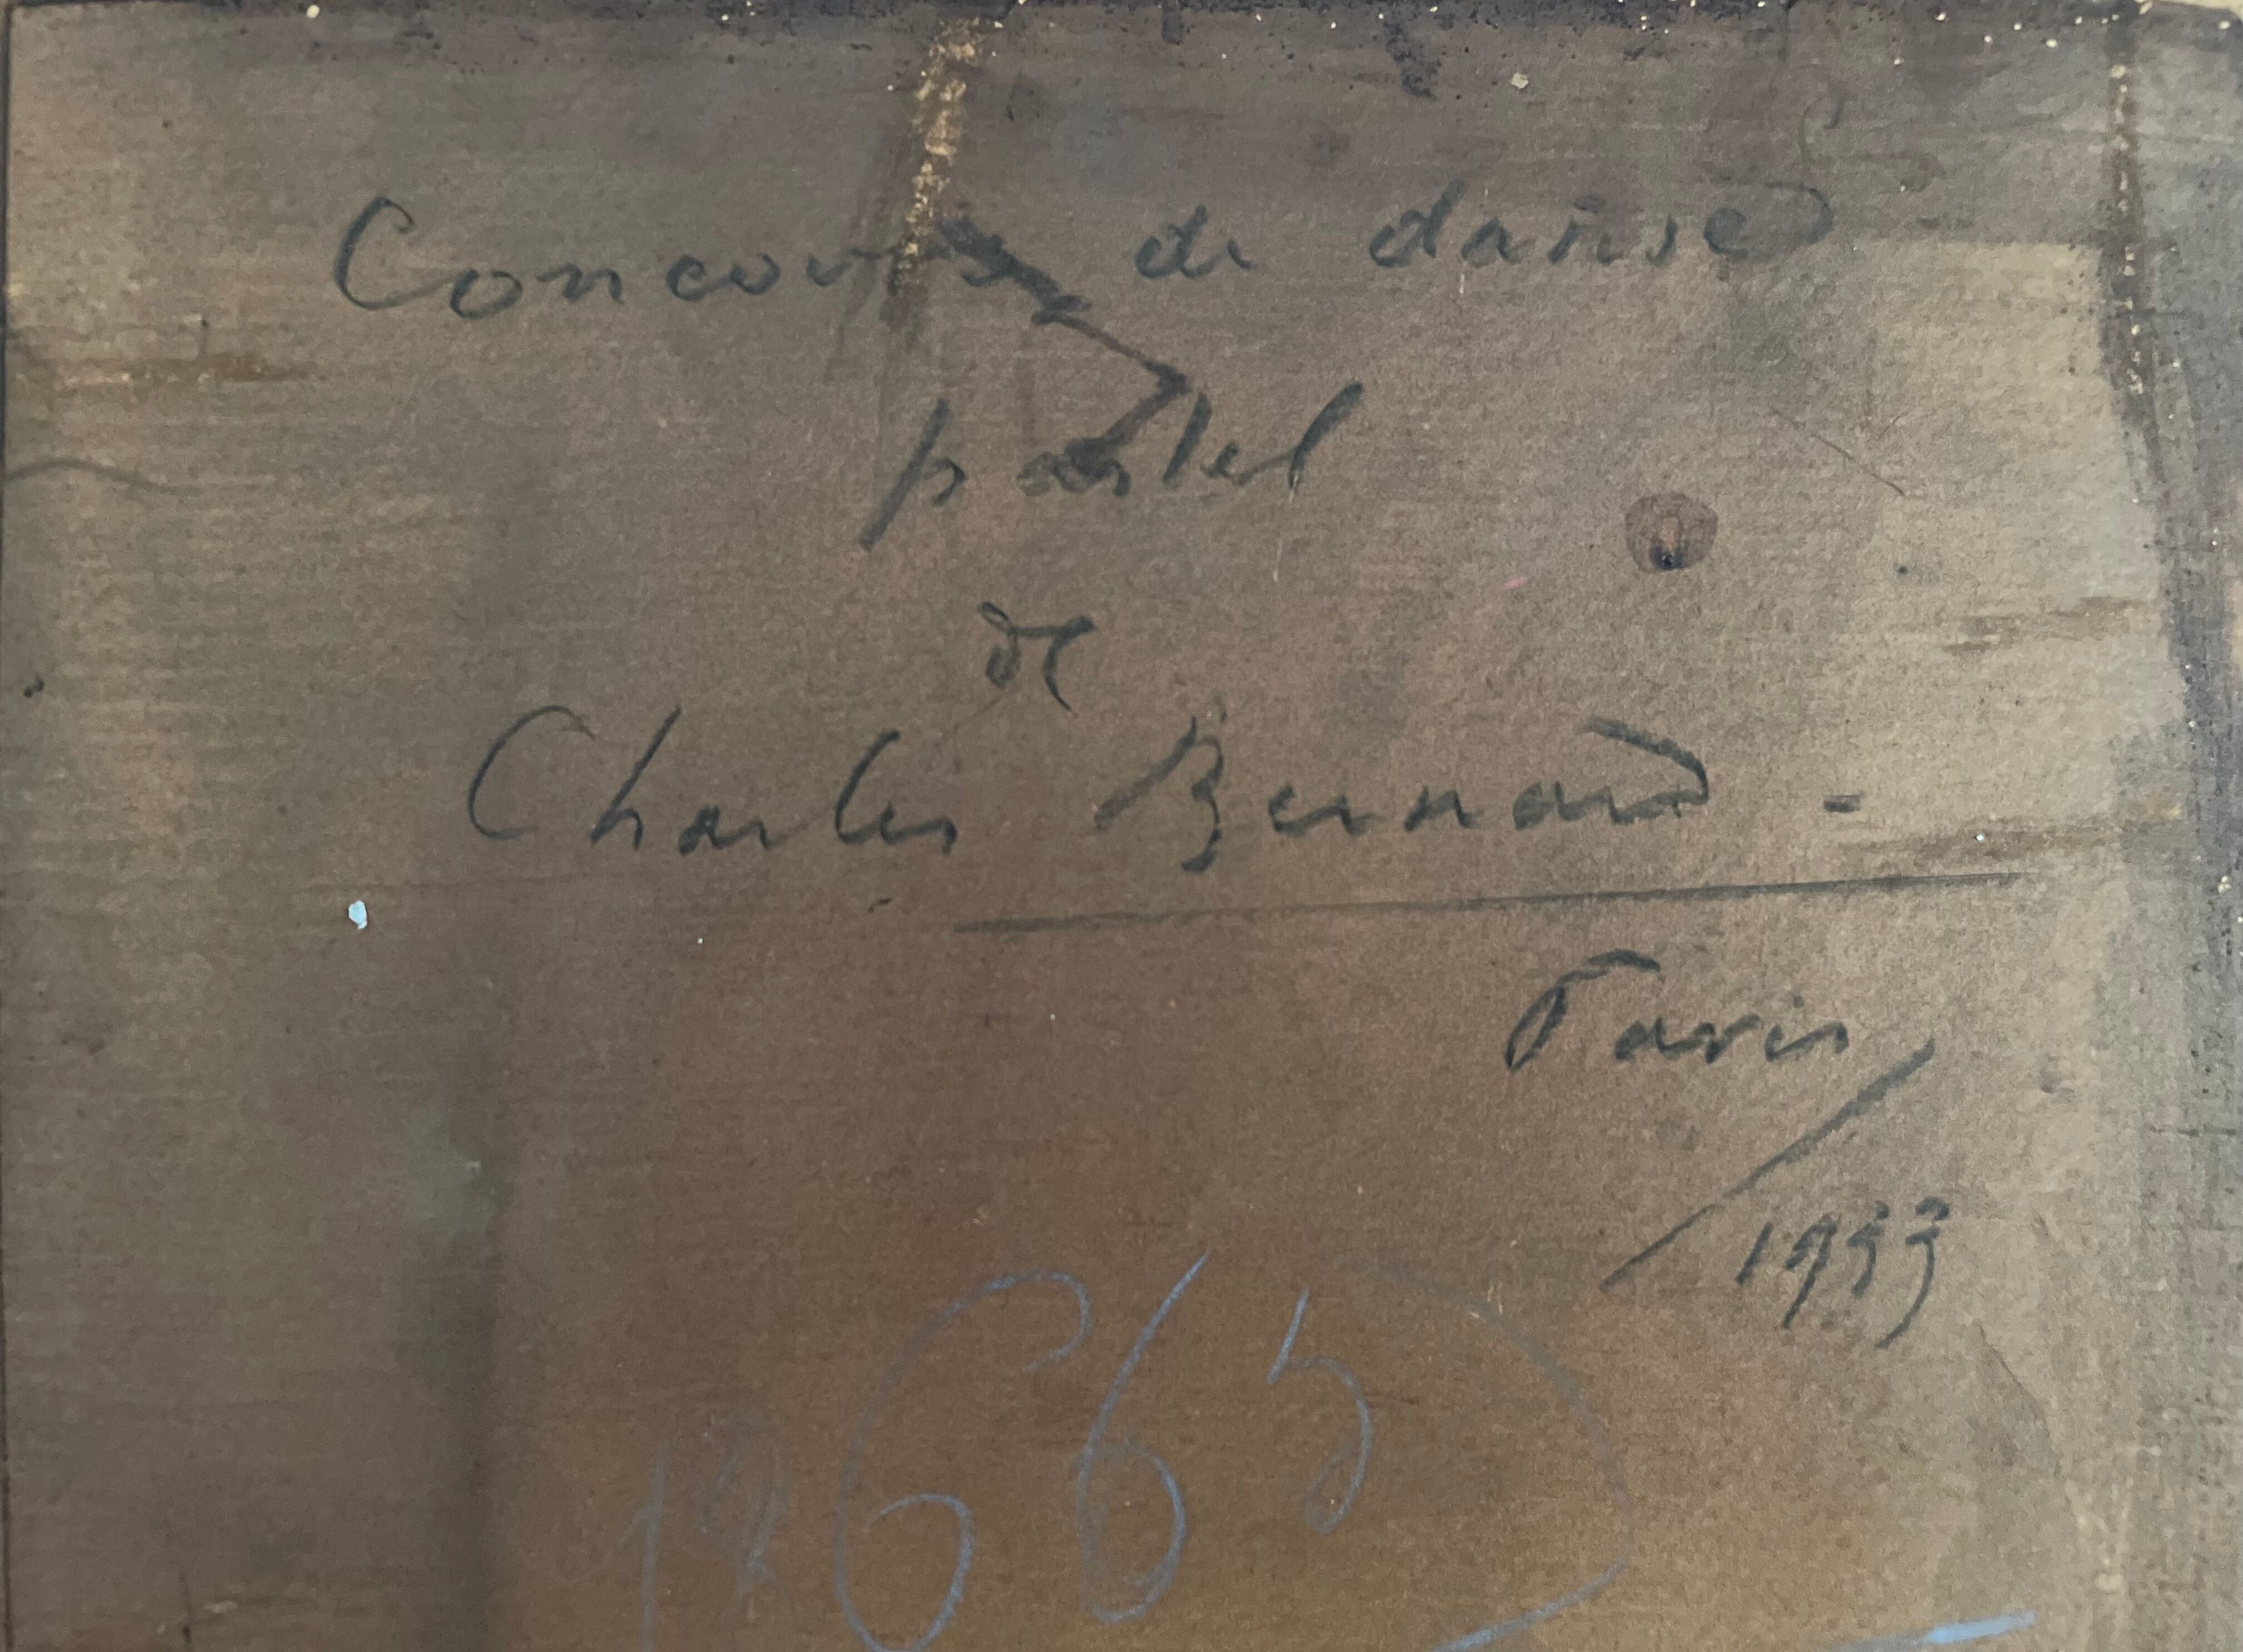 Concours de danse
pastel
de
Charles Bernard -
Paris
1933
665